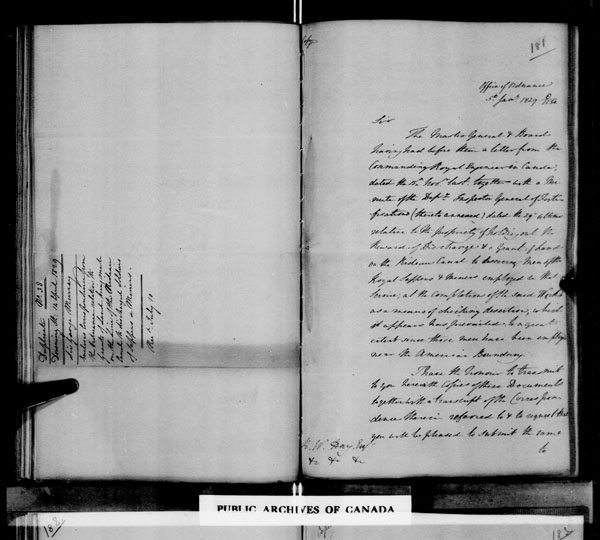 Despatch No. 38
Downing St. 14 April 1829
Sir George Murray
on the line of the Rideau
Canal to discharged Soldiers
of Sappers & Miners.
Rec'd July 10
Copy
181
Office of Ordnance
5th Jany. 1829
Sir
The Master General & Board
having had before them a letter from the
Commanding Royal Engineer in Canada,
dated the 15th Novr. last, together with a Mi-
nute of the Depy. Inspector General of Forti-
fications (thereto annexed) dated the 29th ultimo
relative to the propriety of holding out the
Reward of Discharge & a Grant of Land
on the Rideau Canal to deserving Men of the
Royal Sappers & Miners employed in that
Service, at the completion of the said Works
as a means of checking desertion, which
it appears has prevailed to a great
extent since these men have been employed
near the American Boundary.
I have the Honour to transmit
to you herewith Copies of these Documents
together with a transcript of the Correspon-
dence therein referred to & to request that
you will be pleased to submit the same
to
R. W. Hay, Esqr
&c &c &c
PUBLIC ARCHIVES OF CANADA
182
183